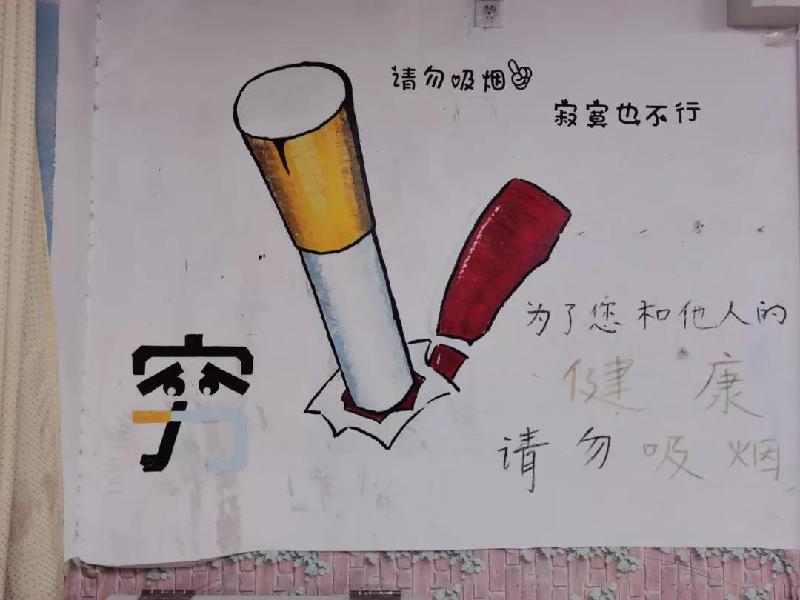 请勿吸烟
寂寞也不行
为了您和他人的
健康
请勿吸烟
穷